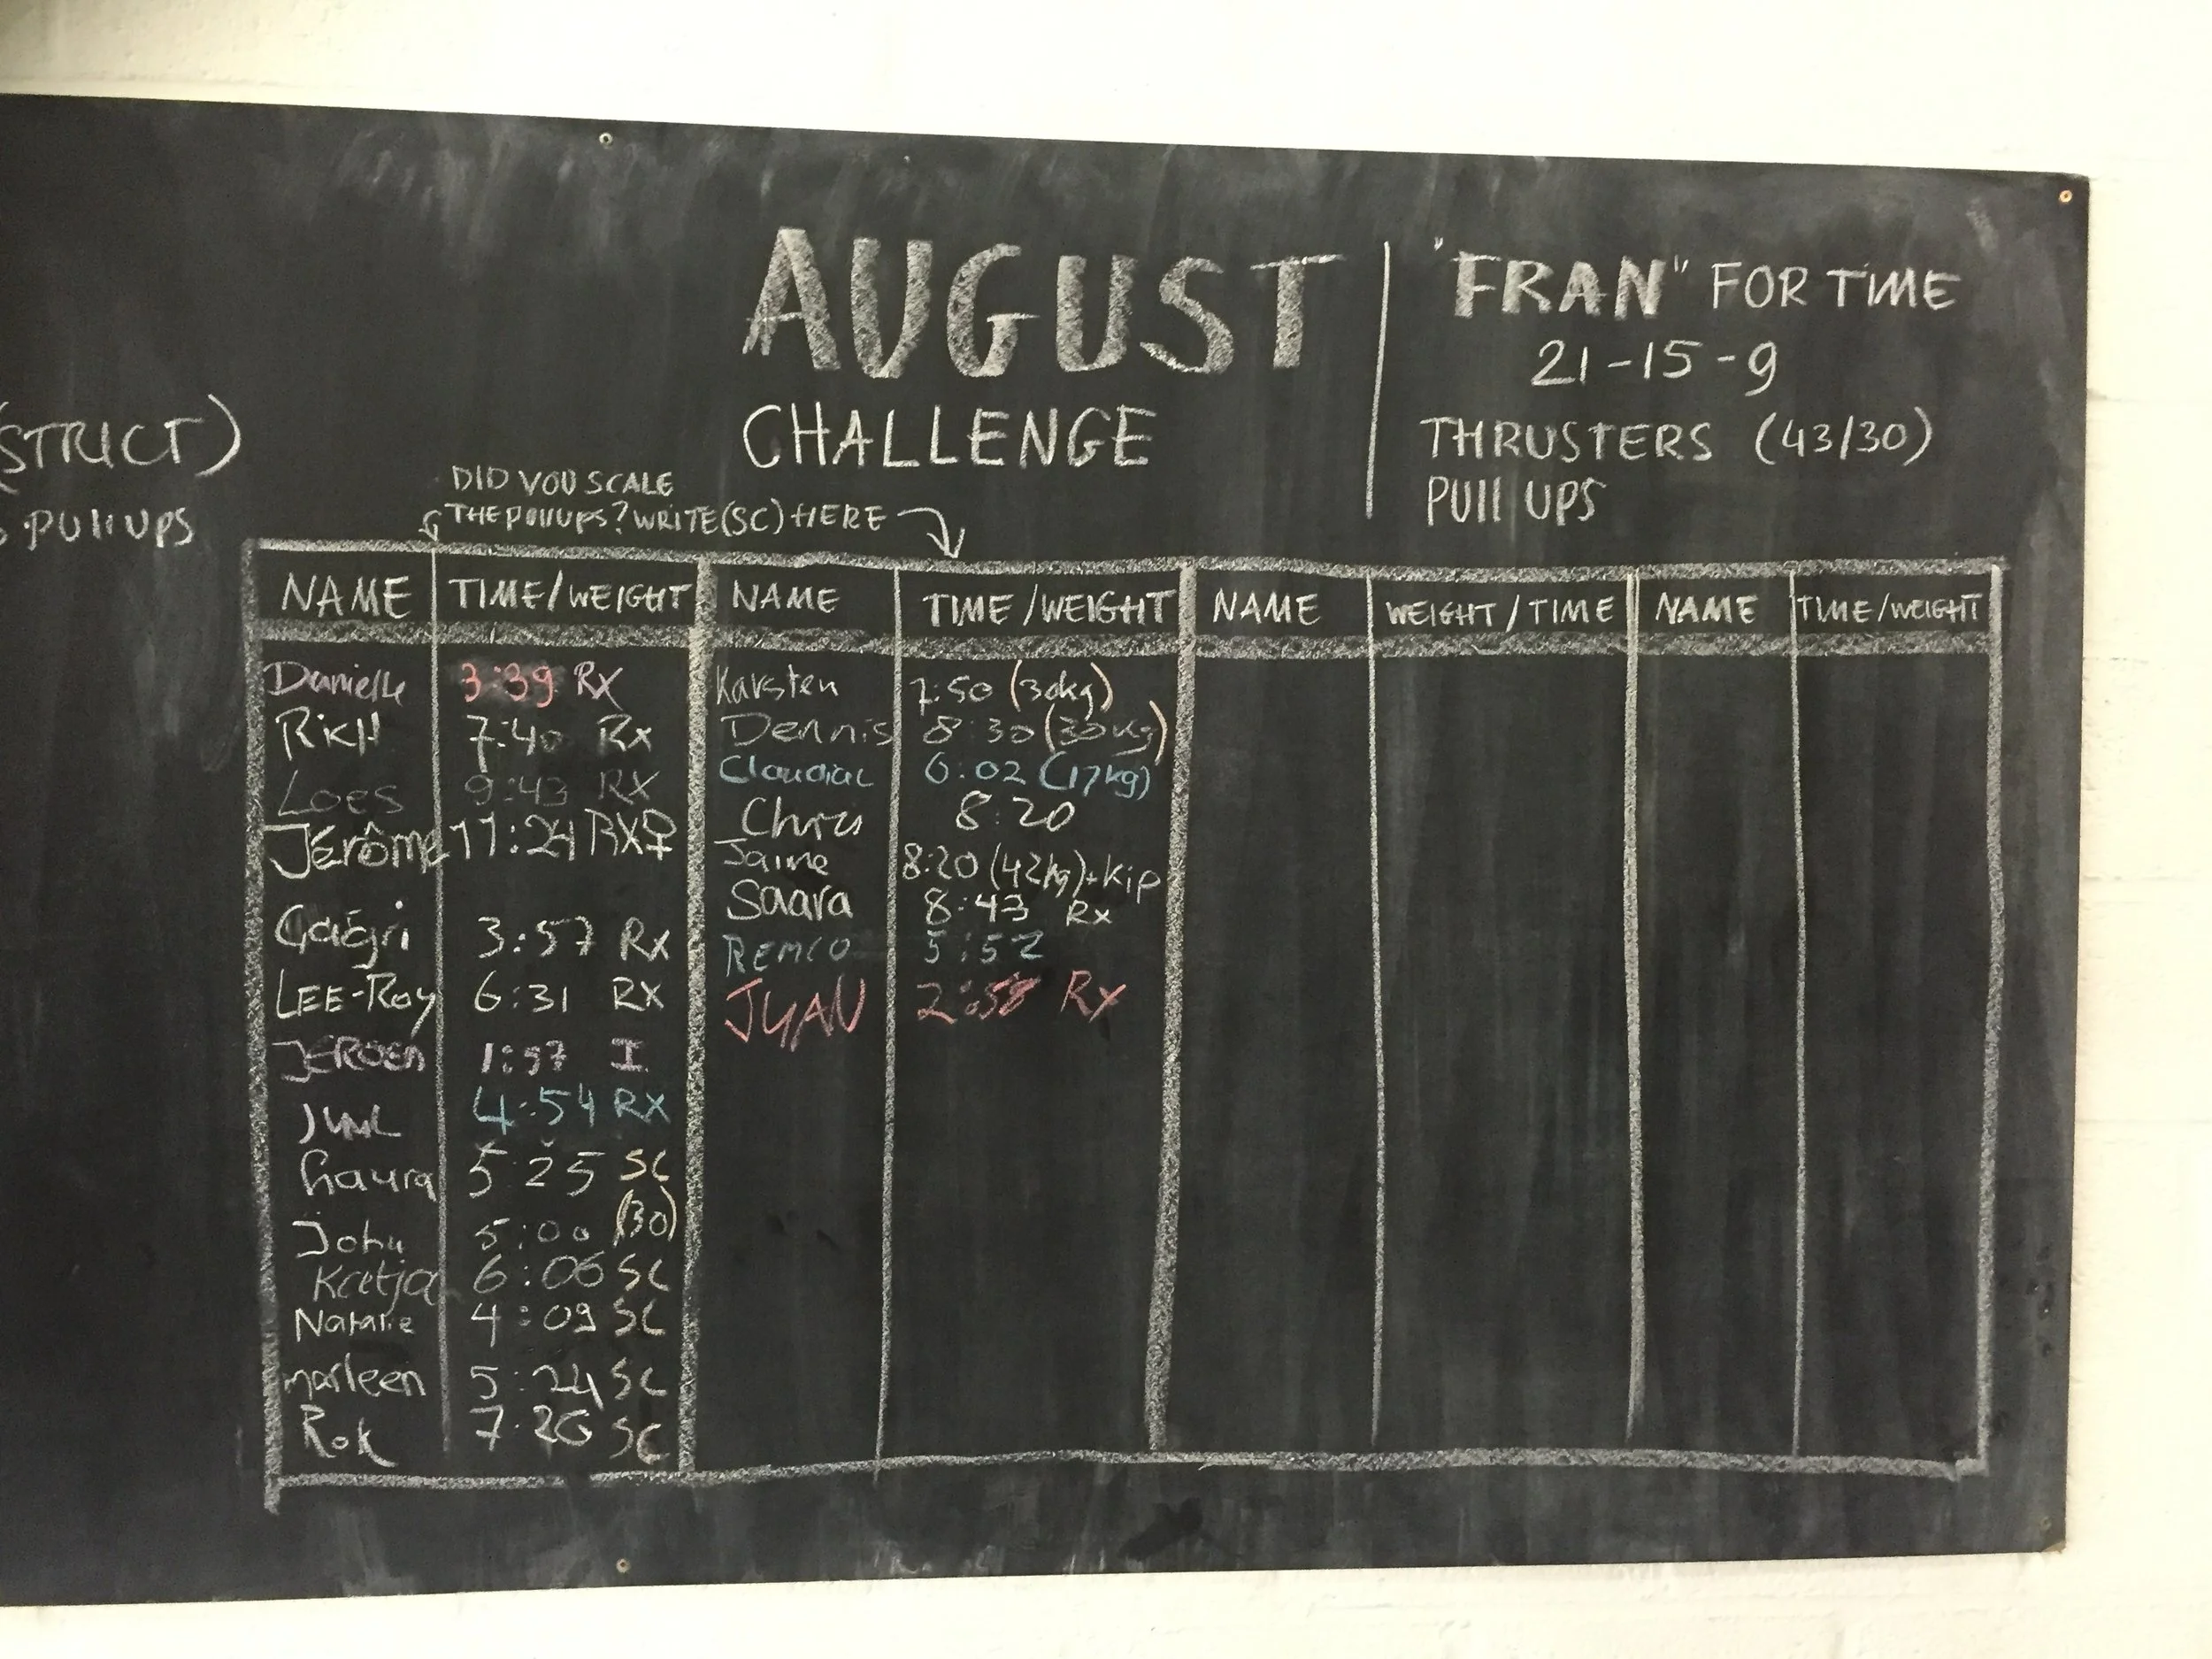 AUGUST
CHALLENGE
"FRAN" FOR TIME
21-15-9
THRUSTERS (43/30)
PUll UPS
(STRICT)
PUllUPS
DID YOU SCALE
THE PUllUPS? WRITE (SC) HERE
NAME TIME/WEIGHT NAME TIME/WEIGHT NAME WEIGHT/TIME NAME TIME/WEIGHT
Danielle 3:39 RX
RicH 7:40 Rx
Loes 9:43 RX
Jérôme 11:24 RX♀
Çağri 3:57 Rx
LEE-Roy 6:31 RX
JEROEN 1:57 I.
4:54 RX
Laura 5:25 SC
John 5:00 (30)
Katja 6:06 SC
Natalie 4:09 SC
marleen 5:24 SC
Rok 7:26 SC
Karsten 7:50 (30kg)
Dennis 8:30 (30kg)
Claudia 6:02 (17kg)
Chris 8:20
Jaime 8:20 (42kg)+Kip
Saara 8:43 Rx
REMCO 5:52
JYAN 2:58 Rx